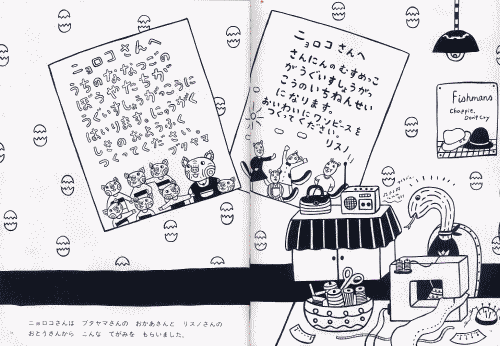 ニョロコさんへ
うちのななつごの
ぼうやたちが
うぐいすしょうがっこうに
はいります。にゅうがく
しきのおようふく
つくってください。
ブタヤマ
ニョロコさんへ
さんにんのむすめっこ
がうぐいすしょうがっ
こうのいちねんせい
になります。
おいわいにワンピースを
つくってください。
リスノ
Fishmans
Choppie,
Don't Cry
ニョロコさんは ブタヤマさんの おかあさんと リスノさんの
おとうさんから こんな てがみを もらいました。